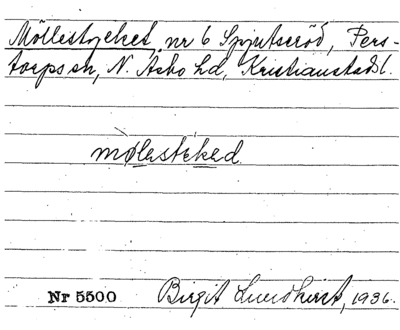 Möllestycket nr 6 Spjutseröd, Pers-
torps sn, N. Åsbo hd, Kristianstads l.
mølestekəd
Nr 5500 Birgit Lundkvist, 1936.